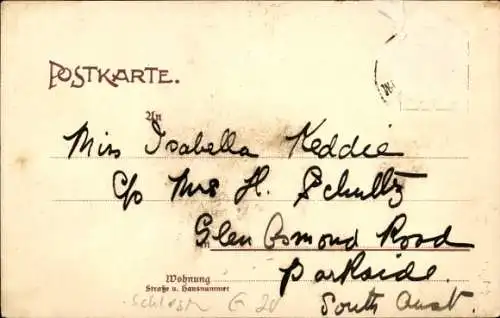 POSTKARTE.
An
Miss Isabella Keddie
c/o Mrs H. Schultz
Glen Osmond Road
Parkside.
Wohnung
Straße u. Hausnummer
South Aust.